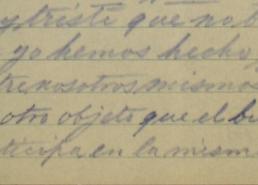 y triste que no b
yo hemos hecho,
tre nosotros mismos
otro objeto que el bi
ticipa en la mism